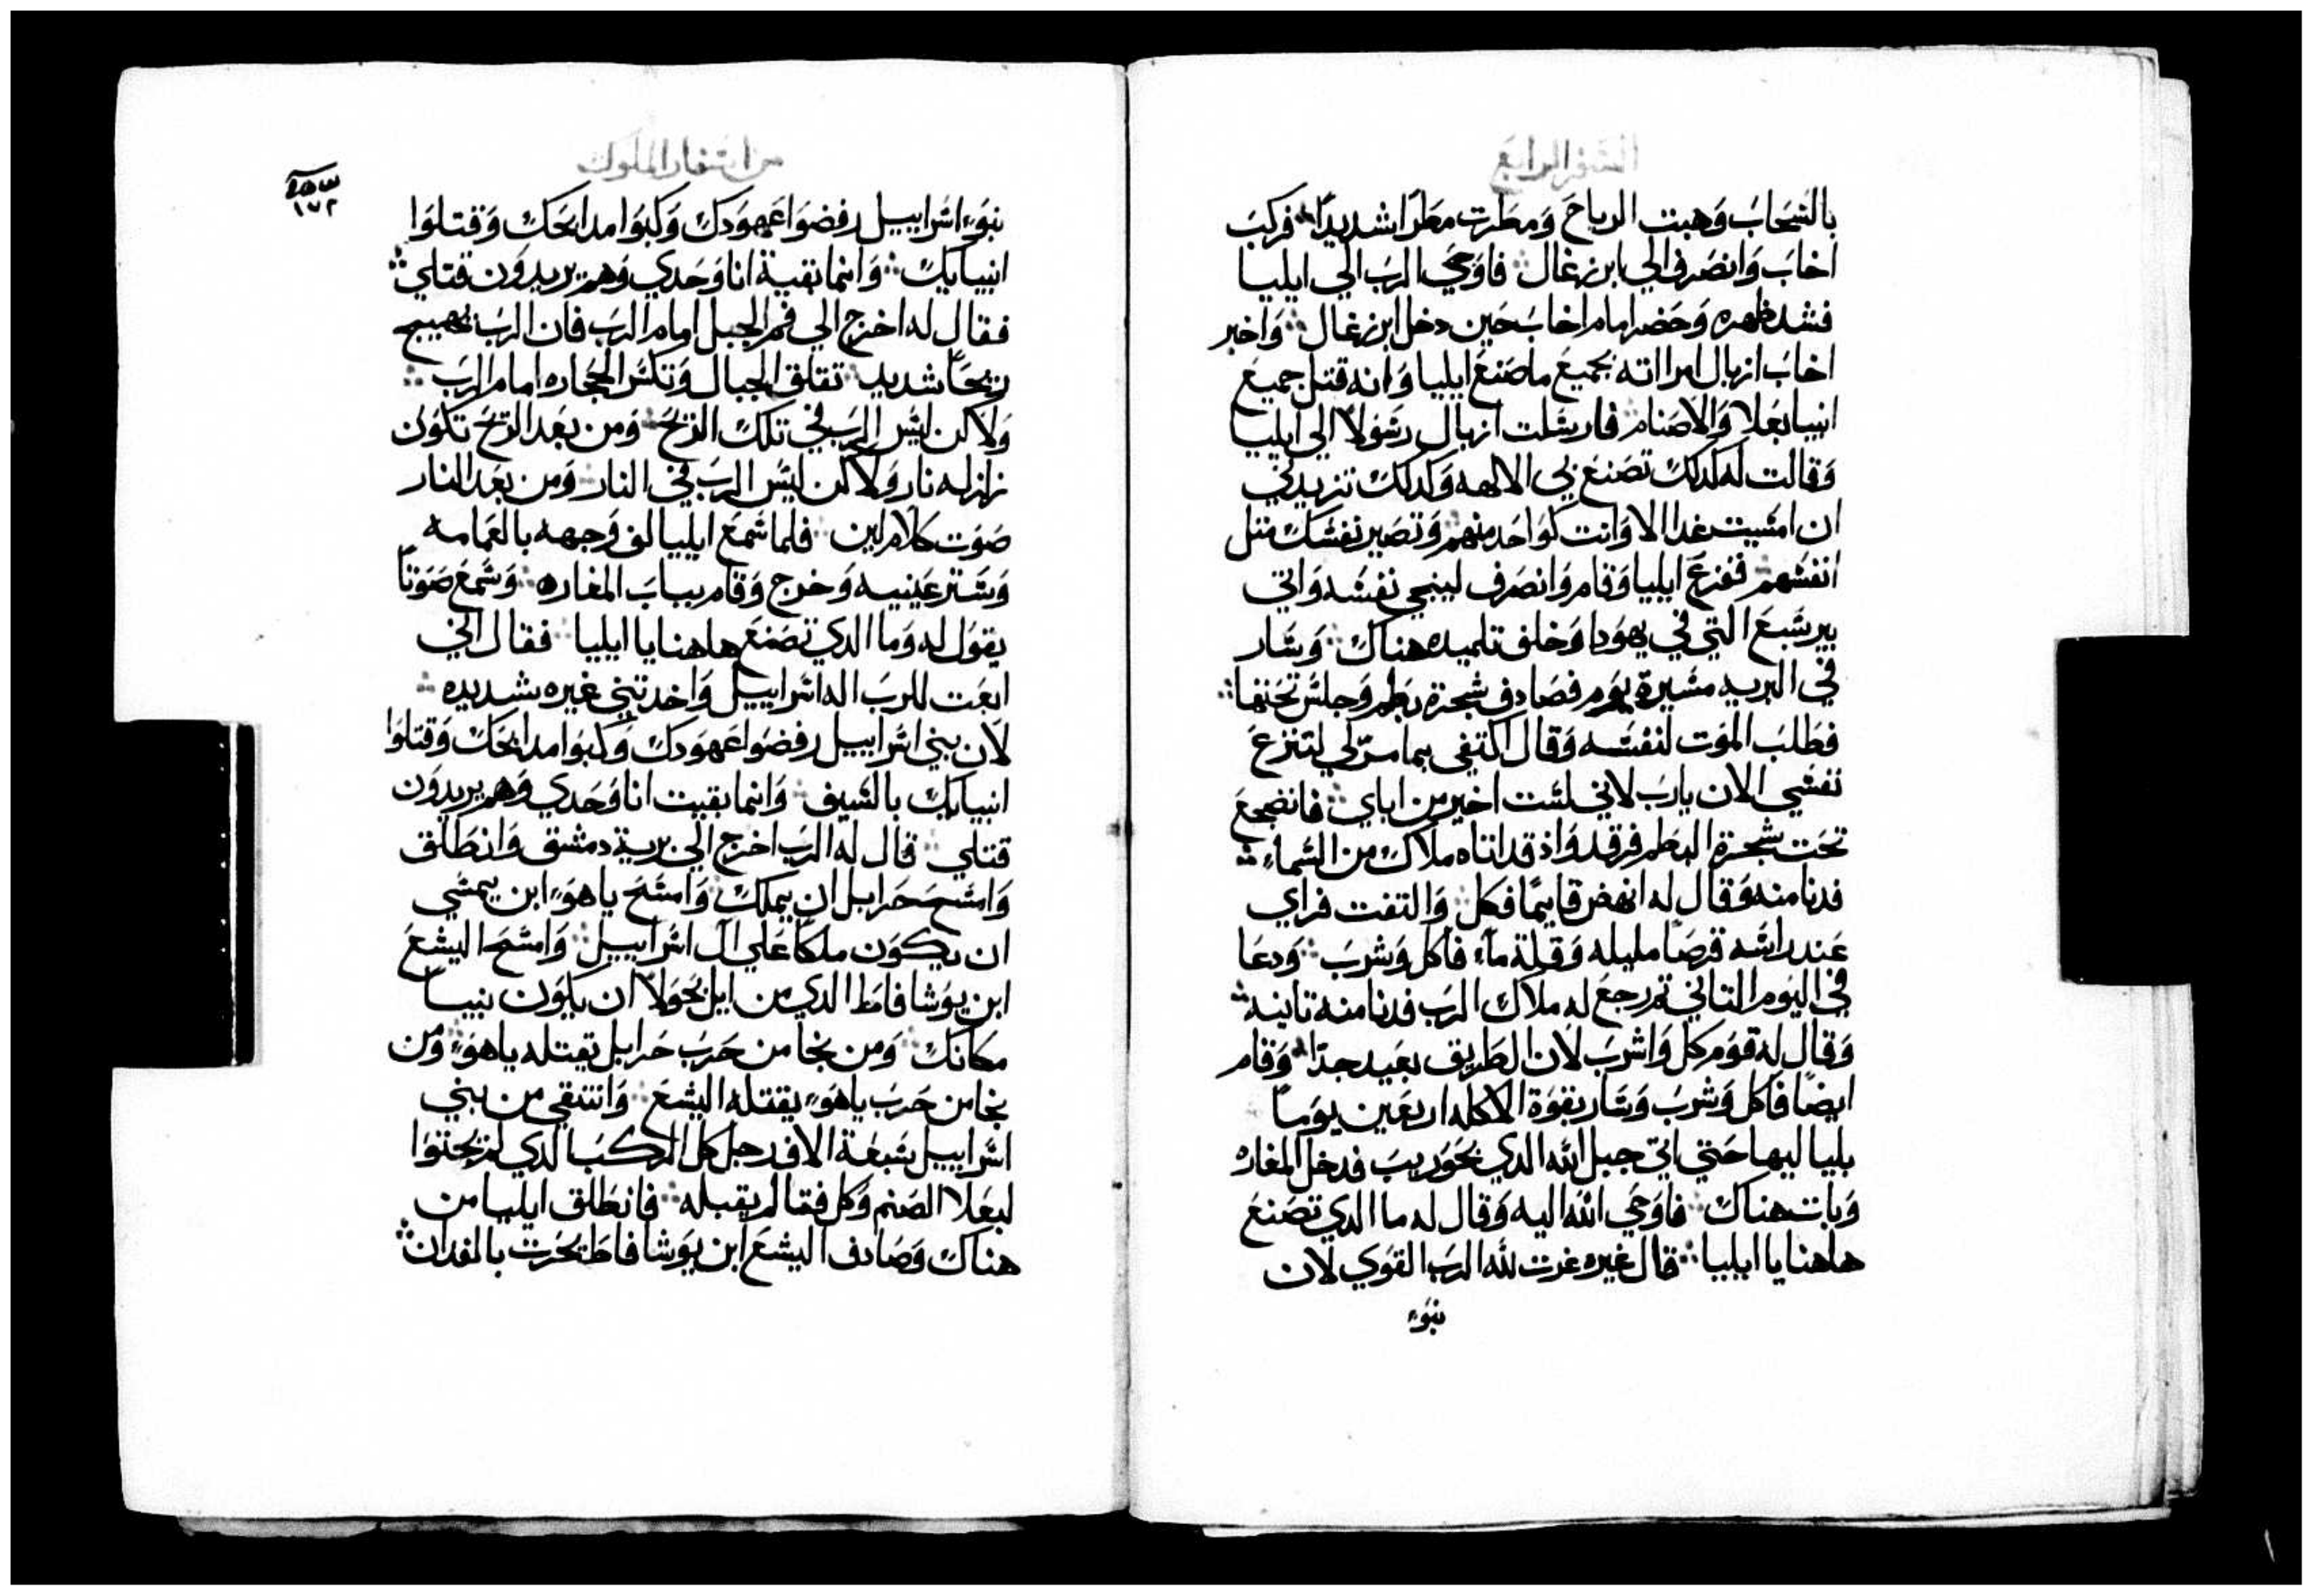 السفر الرابع
بالسحاب وهبت الرياح ومطرت مطرا شديدا فركب
اخاب وانصرف الي ابن زغال فاوحي الرب الي ايليا
فشد ظهره وحضر امام اخاب حين دخل ابن زغال واخبر
اخاب ازبال امراته بجميع ما صنع ايليا وانه قتل جميع
انبيا بعلا والاصنام فارسلت ازبال رسولا الي ايليا
وقالت له كدلك تصنع بي الالهه وكدلك تزيدني
ان امسيت غدا الا وانت كواحد منهم وتصير نفسك مثل
انفسهم ففزع ايليا وقام وانصرف لينجي نفسه واتي
بير شبع التي في يهودا وخلف تلميده هناك وسار
في البريه مسيرة يوم فصادف شجرة بطم وجلس تحتها
فطلب الموت لنفسه وقال اكتفي بما مر لي لتنزع
نفسي الان يا رب لاني لست اخير من اباي فانضجع
تحت شجرة البطم فرقد واذ قد اتاه ملاك من السماء
فدنا منه وقال له انهض قايما فكل والتفت فراي
عند راسه قرصا مليله وقلة ماء فاكل وشرب ودعا
في اليوم التاني تم رجع له ملاك الرب فدنا منه تانيه
وقال له قوم كل واشرب لان الطريق بعيد جدا وقام
ايضا فاكل وشرب وسار بقوة الاكله اربعين يوما
بلياليها حتي اتي جبل الله الدي بحوريب فدخل المغاره
وبات هناك فاوحي الله اليه وقال له ما الدي تصنع
هاهنا يا ايليا قال غيره غرت لله الرب القوي لان
بنوء
من اسفار الملوك
١٧٢
بنوء اسراييل رفضوا عهودك وكبوا مدابحك وقتلوا
انبيايك وانما بقية انا وحدي وهم يريدون قتلي
فقال له اخرج الي فم الجبل امام الرب فان الرب يهييج
ريحا شديد تقلق الجبال وتكسر الحجاره امام الرب
ولاكن ليس الرب في تلك الريح ومن بعد الريح تكون
زلزله نار ولاكن ليس الرب في النار ومن بعد النار
صوت كلام لين فلما سمع ايليا لف وجهه بالعمامه
وستر عينيه وخرج وقام بباب المغاره وسمع صوتا
يقول له وما الدي تصنع هاهنا يا ايليا فقال اني
ابعت للرب اله اسراييل واخدتني غيره شديده
لان بني اسراييل رفضوا عهودك وكبوا مدابحك وقتلوا
انبيايك بالسيف وانما بقيت انا وحدي وهم يريدون
قتلي قال له الرب اخرج الي برية دمشق وانطلق
وامسح حرايل ان يملك وامسح ياهوء ابن يمشي
ان يكون ملكا علي ال اسراييل وامسح اليشع
ابن يوشافاط الدي من ايل بحولا ان يكون نبيا
مكانك ومن نجا من حرب حرايل يقتله ياهوء ومن
نجا من حرب ياهوء يقتله اليشع وانتقي من بني
اسراييل سبعة الاف رجل كل الركب الدي لم يجتوا
لبعلا الصنم وكل فم لم يقبله فانطلق ايليا من
هناك وصادف اليشع ابن يوشافاط يحرت بالفدان